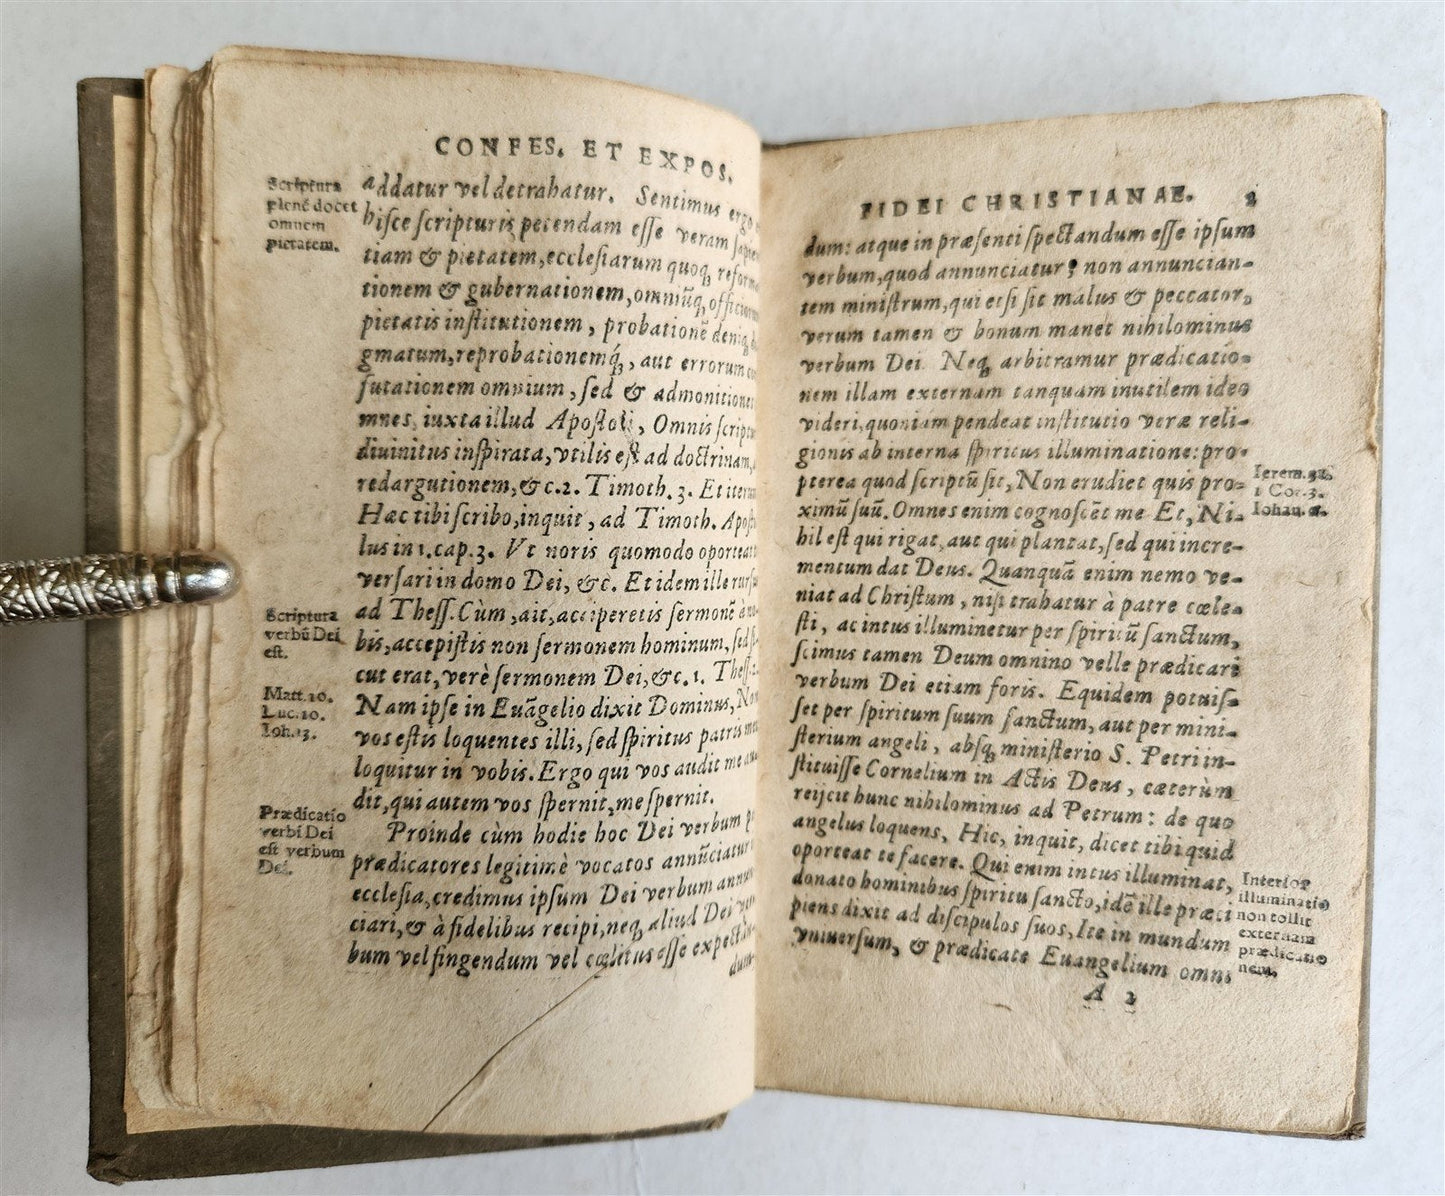 CONFES. ET EXPOS.
Scriptura
plenè docet
omnem
pietatem.
addatur vel detrahatur. Sentimus ergo
hisce scripturis petendam esse veram sapien
tiam & pietatem, ecclesiarum quoq; refor
tionem & gubernationem, omniũq; officiorum
pietatis institutionem, probationẽ deniq;
gmatum, reprobationemq́;, aut errorum
futationem omnium, sed & admonitiones
mnes, iuxta illud Apostoli, Omnis script
diuinitus inspirata, vtilis est ad doctrinam,
redargutionem, &c. 2. Timoth. 3. Et iterum
Hæc tibi scribo, inquit, ad Timoth. Aposto
lus in 1. cap. 3. Vt noris quomodo oporteat
versari in domo Dei, &c. Et idem ille rursus
Scriptura
verbũ Dei
est.
ad Thess. Cùm, ait, acciperetis sermonẽ à no-
bis, accepistis non sermonem hominum, sed si-
cut erat, verè sermonem Dei, &c. 1. Thess. 2.
Matt. 10.
Luc. 10.
Ioh. 13.
Nam ipse in Euãgelio dixit Dominus, Non
vos estis loquentes illi, sed spiritus patris mei
loquitur in vobis. Ergo qui vos audit me au
dit, qui autem vos spernit, me spernit.
Prædicatio
verbi Dei
est verbum
Dei.
Proinde cùm hodie hoc Dei verbum p
prædicatores legitimè vocatos annũciatur
ecclesia, credimus ipsum Dei verbum annun
ciari, & à fidelibus recipi, neq; aliud Dei ver
bum vel fingendum vel cœlitus esse expectan-
dum:
FIDEI CHRISTIANAE. 2
dum: atque in præsenti spectandum esse ipsum
verbum, quod annunciatur, non annuncian-
tem ministrum, qui etsi sit malus & peccator,
verum tamen & bonum manet nihilominus
verbum Dei. Neq; arbitramur prædicatio-
nem illam externam tanquam inutilem ideo
videri, quoniam pendeat institutio veræ reli-
gionis ab interna spiritus illuminatione: pro-
pterea quod scriptũ sit, Non erudiet quis pro-
ximũ suũ. Omnes enim cognoscẽt me Et, Ni-
hil est qui rigat, aut qui plantat, sed qui incre-
mentum dat Deus. Quanquã enim nemo ve-
niat ad Christum, nisi trahatur à patre cœle-
sti, ac intus illuminetur per spiritũ sanctum,
scimus tamen Deum omnino velle prædicari
verbum Dei etiam foris. Equidem potuis-
set per spiritum suum sanctum, aut per mini-
sterium angeli, absq; ministerio S. Petri in-
stituisse Cornelium in Actis Deus, cæterùm
reijcit hunc nihilominus ad Petrum: de quo
angelus loquens, Hic, inquit, dicet tibi quid
oporteat te facere. Qui enim intus illuminat,
donato hominibus spiritu sancto, idẽ ille præci
piens dixit ad discipulos suos, Ite in mundum
vniuersum, & prædicate Euangelium omni
Ierem. 31.
1 Cor. 3.
Iohan. 6.
Interior
illuminatio
non tollit
externam
prædicatio
nem.
A 2